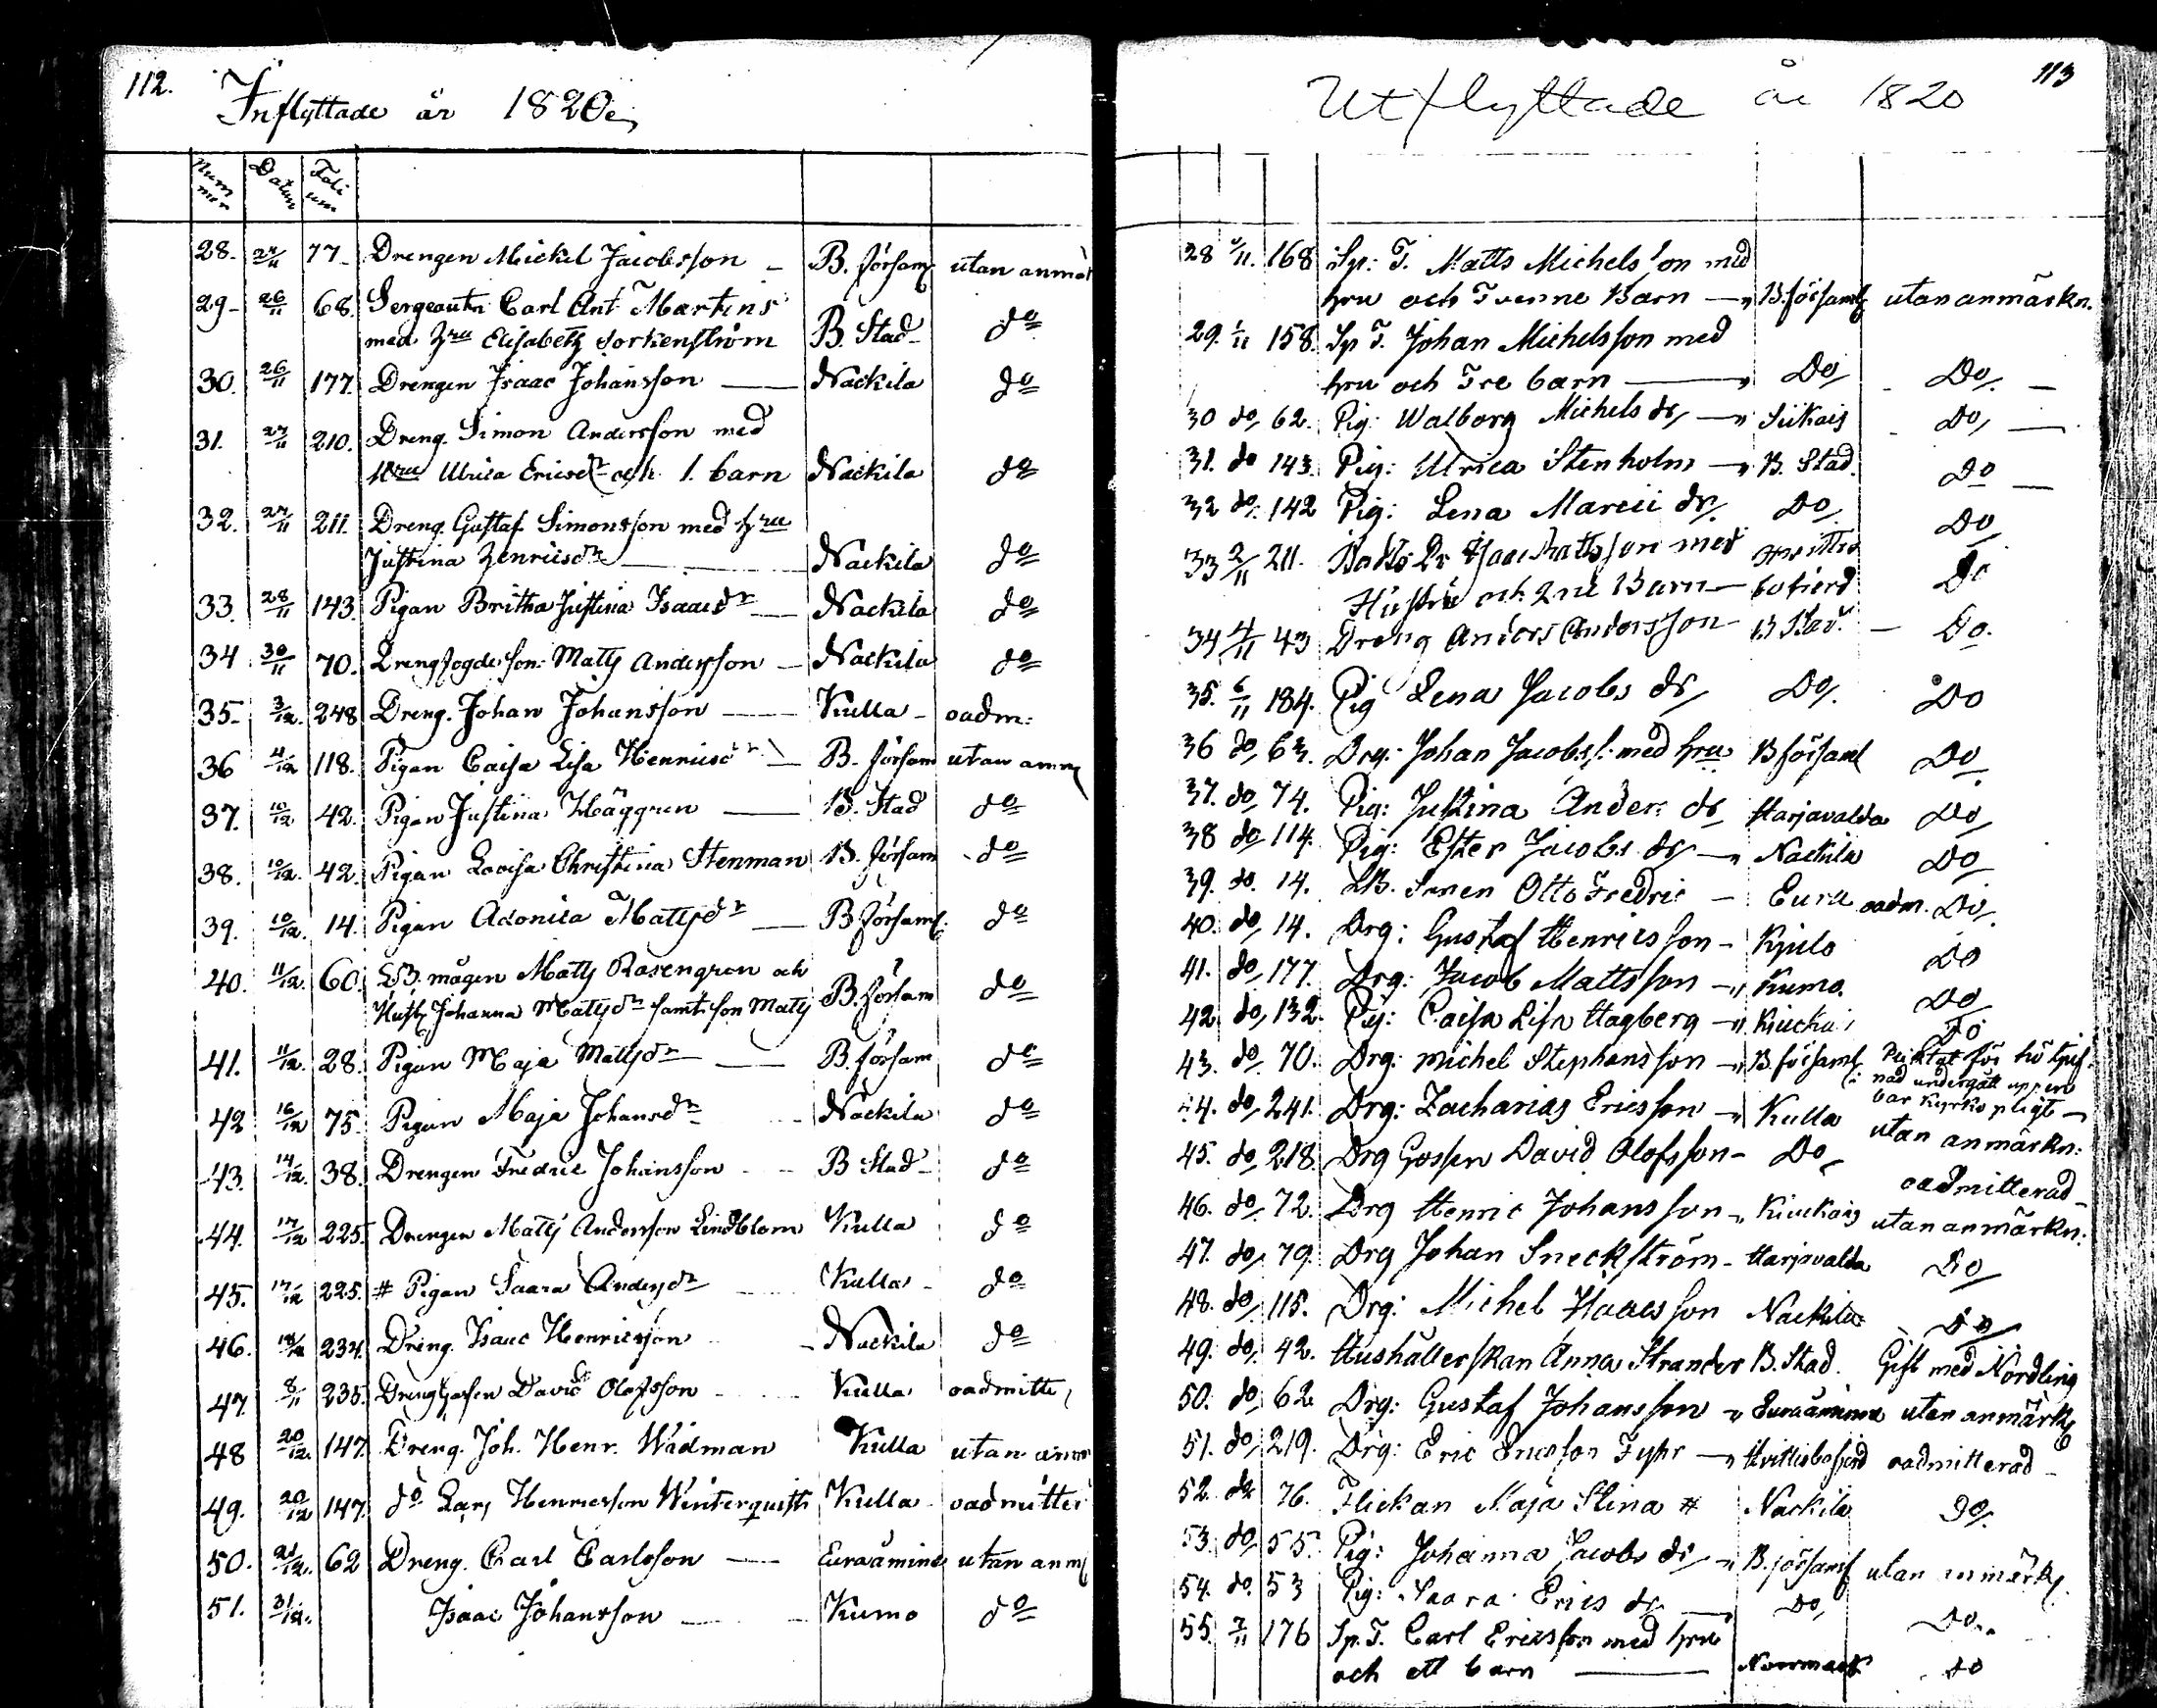 112.
Inflyttade år 1820
Num mer Datum Foli um
28. 24/11 77 Drengen Mickel Jacobsson B. församl utan anmä
29 26/11 68. Sergeantn Carl Ant Martins
med Hru Elisabeth B. Stad do
30. 26/11 177. Drengen Isaac Johansson Nackila do
31. 27/11 210. Dreng. Simon Andersson med
Hru Ulrica Ericsdr och 1. barn Nackila do
32. 27/11 211. Dreng. Gustaf Simonsson med hru
Justina Henricsdr Nackila do
33. 28/11 143. Pigan Britha Justina Isaacsdr Nackila do
34 30/11 70. Drengfogde son: Matts Andersson Nackila do
35 3/12. 248 Dreng. Johan Johansson Kulla oadm:
36 4/12 118. Pigan Caisa Lisa Henricsdr B. församl utan anm
37. 10/12 42. Pigan Justina Häggren B. Stad do
38. 10/12. 42. Pigan Lovisa Christina Stenman B. församl do
39. 10/12. 14. Pigan Adonica Mattsdr B. församl. do
40. 11/12. 60. LB. mågen Matts Rosengren och
Hustr Johanna Mattsdr samt son Matts B. församl do
41. 11/12. 28. Pigan Maja Mattsdr B. församl do
42 16/12 75. Pigan Maja Johansdr Nackila do
43. 14/12. 38. Drengen Fredric Johansson B Stad do
44. 17/12 225. Drengen Matts Andersson Lindblom Kulla do
45. 17/12 225. # Pigan Saara Andersdr Kulla do
46. 18/12 234. Dreng. Isaac Henricsson Nackila do
47. 8/11 235. Drenggossen David Olofsson Kulla oadmitte
48 20/12. 147. Dreng. Joh. Henr. Wadman Kulla utan anm
49. 20/12 147. do Lars Henricsson Winterquist Kulla oadmitter
50. 21/12. 62 Dreng. Carl Carlsson Euraåminne utan anm
51. 31/12. Isaac Johansson Kumo do
113
Utflyttade år 1820
28 1/11. 168 Sp: T. Matts Michelsson med
hru och Tvenne Barn B. församl utan anmärkn.
29. 1/11 158. Sp T. Johan Michelsson med
hru och Tre barn Do Do.
30 do 62. Pig: Walborg Michels dr Sükais Do
31. do 143. Pig: Ulrica Stenholm B. Stad. Do
32 do. 142 Pig: Lena Marcii dr. Do. Do
33 2/11 211. Isaac Mattsson med Hvittis
Hustru och 2ne Barn bofierd Do
34 4/11 43 Dreng Anders Andersson B Stad. Do.
35. 6/11 184. Pig Lena Jacobs dr Do. Do
36 do 63. Drg: Johan Jacobss: med hru B församl Do
37. do 74. Pig: Justina Anders dr Harjavalda Do
38 do 114. Pig: Ester Jacobs dr Nackila Do
39. do. 14. LB. Sonen Otto Fredric Eura oadm. Do.
40. do 14. Drg: Gustaf Henricsson Kjulo Do
41. do 177. Drg: Jacob Mattsson Kumo. Do
42 do 132. Pig: Caisa Lisa Hagberg Kiuckai Do
43. do 70. Drg: Michel Stephansson B. församl: Pliktat för hö tjuf
nad undergått uppen
bar kyrko pligt
44. do 241. Drg: Zacharias Ericsson Kulla utan anmärkn:
45. do 218 Drg Gossen David Olofsson Do oadmitterad
46. do. 72. Drg Henric Johansson Kiuckais utan anmärkn:
47. do 79. Drg Johan Sneckström Harjavalda Do
48. do 115. Drg: Michel Isaacsson Nackila Do
49. do. 42. Hushållerskan Anna Strander B. Stad. Gift med Nordling
50. do 62 Drg: Gustaf Johansson Euraåminne utan anmärk
51. do 219. Drg: Eric Ericsson Fyhr Hvittisbofjerd oadmitterad
52. do 76. Flickan Maja Stina # Nackila Do.
53. do 55. Pig: Johanna Jacobs dr B. församl utan anmärk.
54. do. 53 Pig: Saara Erics dr Do Do.
55. 7/11 176 Sp. T. Carl Ericsson med hru
och ett barn Norrmark do